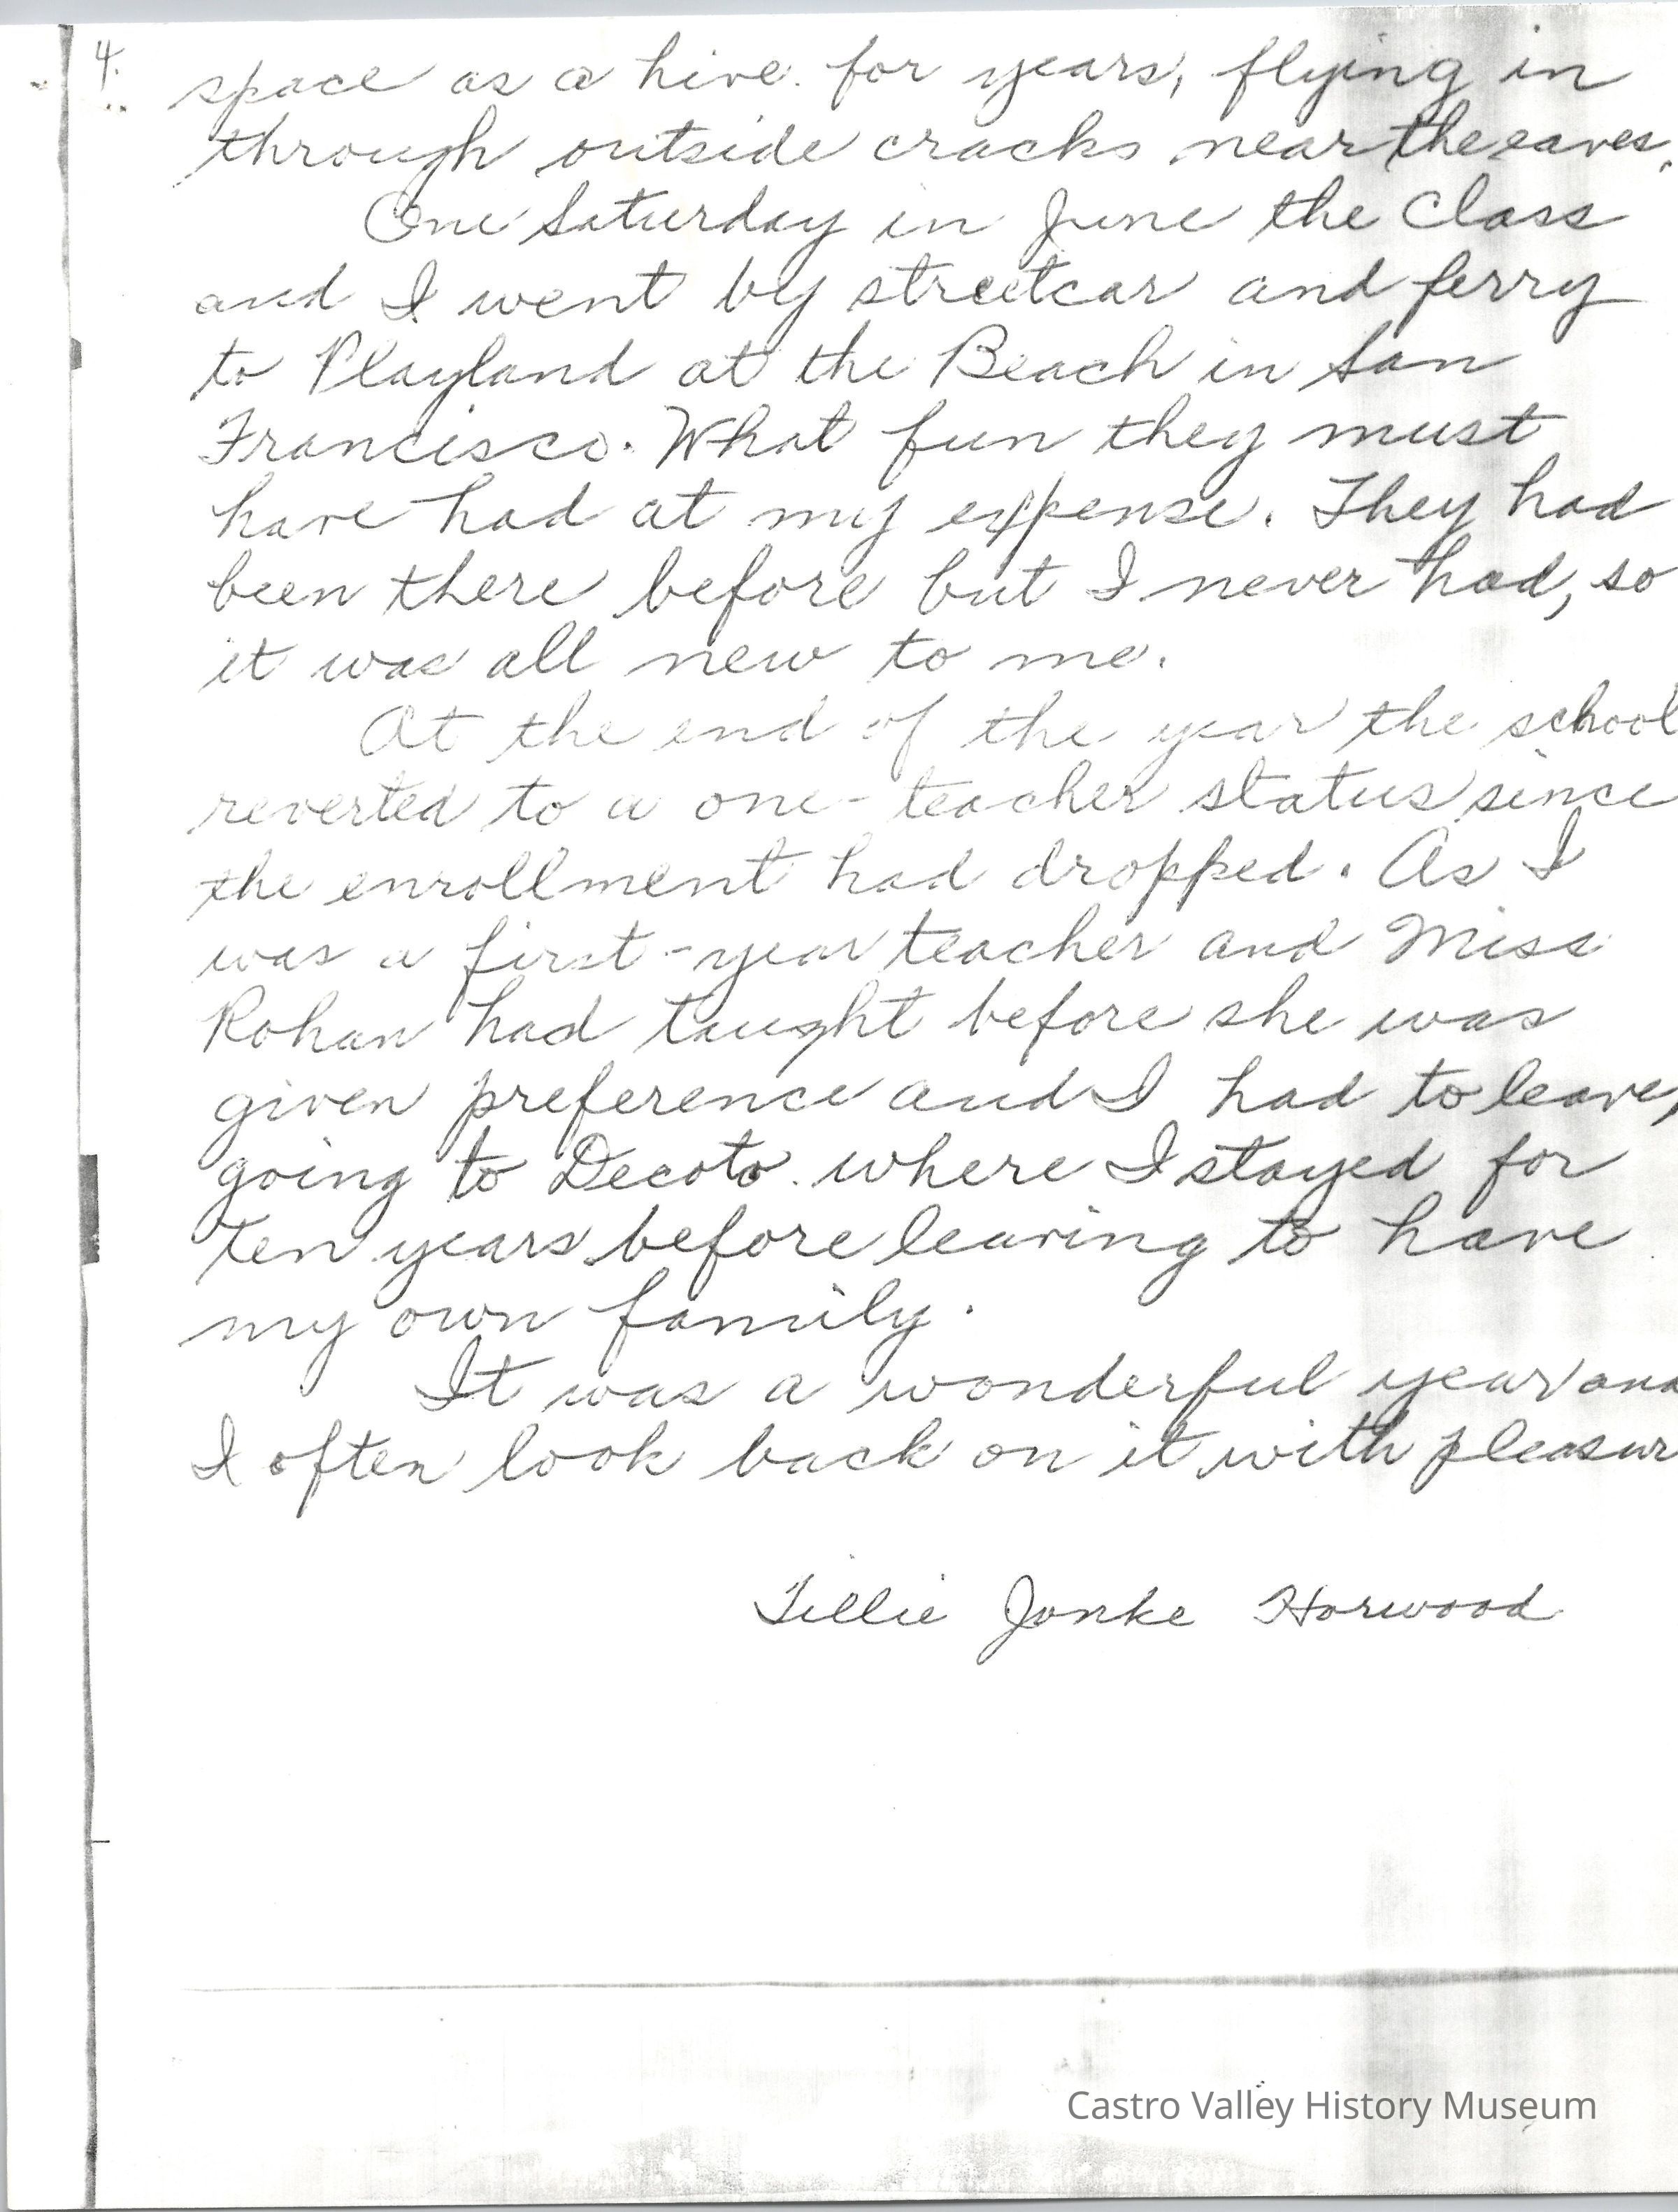 4.
space as a hive. for years, flying in
through outside cracks near the eaves.
One Saturday in June the Class
and I went by streetcar and ferry
to Playland at the Beach in San
Francisco. What fun they must
have had at my expense. They had
been there before but I never had, so
it was all new to me.
At the end of the year the school
reverted to a one-teacher status since
the enrollment had dropped. As I
was a first-year teacher and Miss
Rohan had taught before she was
given preference and I had to leave,
going to Decoto where I stayed for
ten years before leaving to have
my own family.
It was a wonderful year and
I often look back on it with pleasur
Tillie Jonke Horwood
Castro Valley History Museum